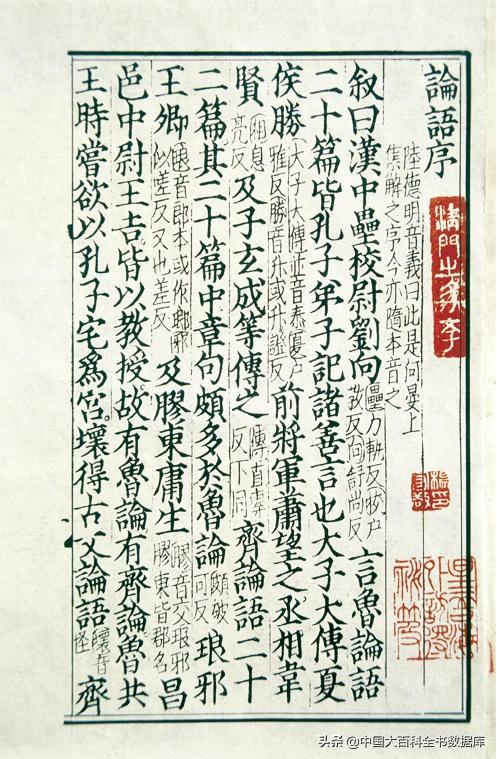 論語序
陸德明音義曰此是何晏上
集解之序今亦隨本音之
叙曰漢中壘校尉劉向壘力軌反校户敎反向舒尚反言魯論語
二十篇皆孔子弟子記諸善言也大子大傅夏
侯勝大子大傅並音泰夏户雅反勝音升或升證反前將軍蕭望之丞相韋
賢相息亮反及子玄成等傳之傳直專反下同齊論語二十
二篇其二十篇中章句頗多於魯論頗破何反琅邪
王卿琅音郎本或作瑯邪似差反又也差反及膠東庸生膠音交琅邪膠東皆郡名昌
邑中尉王吉皆以教授故有魯論有齊論魯共
王時嘗欲以孔子宅爲宫壞得古文論語壞音怪齊
头条 @中国大百科全书数据库